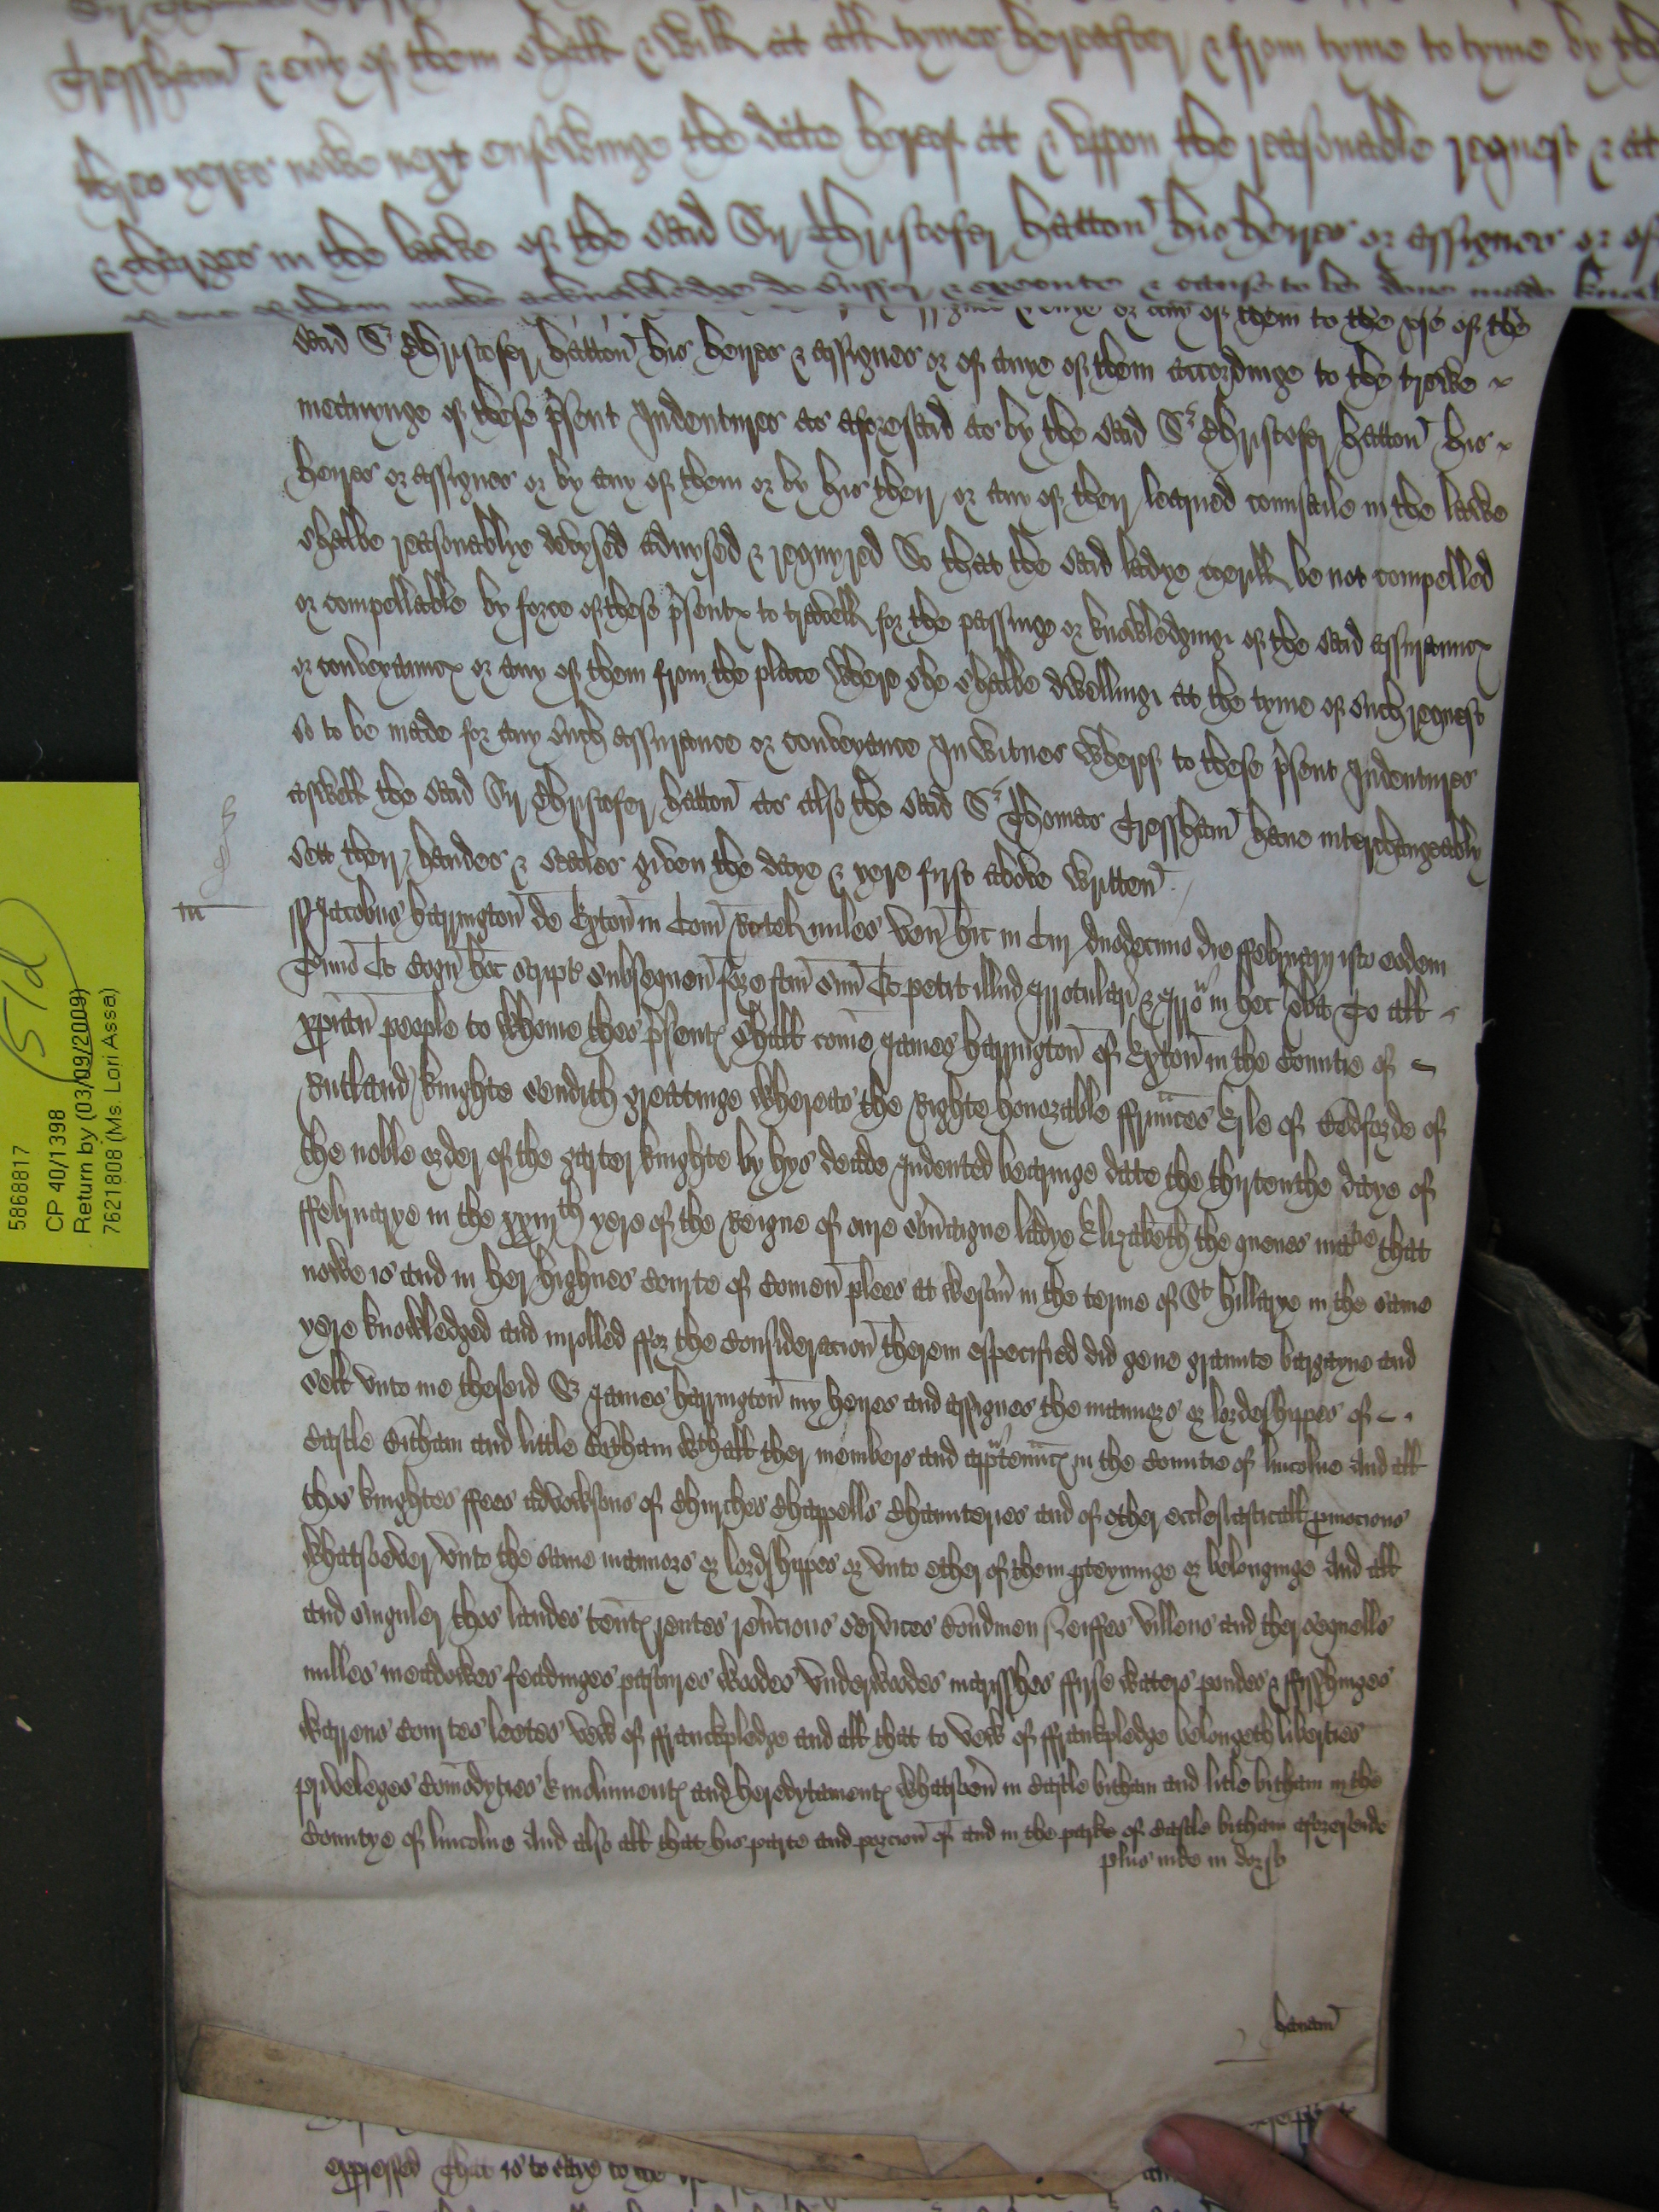 Tressham & eny of them shall & will at all tymes hereafter & from tyme to tyme by the
three yeres nowe next ensewinge the date hereof at & uppon the reasonable request & at
& charges in the lawe of the said Sir Christofer Hatton his heyres or assignes or of
or one of them make acknowledge do suffer & execute & cause to be done made know
or any of them to the use of the
said Sr Christofer Hatton his heyres & assignes or of anye of them accordinge to the trewe
meanynge of these psent Indentures as aforesaid as by the said Sr Christofer Hatton his
heyres or assignes or by any of them or by his their or any of their learned counsaile in the lawe
shalbe reasonablye devysed advysed & requyred So that the said ladye be not compelled
or compellable by force of these psents to travell for the passinge or knowledginge of the said assurances
or conveyances or any of them from the place where she shalbe dwellinge at the tyme of such request
so to be made for any such assurance or conveyance In witnes wherof to these psent Indentures
aswell the said Sir Christofer Hatton as also the said Sr Thomas Tressham have interchangeably
sett their handes & seales geven the daye & yere first above written
Jacobus Harrington de Exton in Com Rotel miles ven hic in Cur duodecimo die ffebruarij isto eodem
Tmino Et cogn hoc script subsequen fore fcm suu Et petit illud irrotulari & irro in hec vba To all
xpian people to whome thes psents shall come James Harrington of Exton in the Countie of
Rutland knighte sendith greatinge whereas the Righte honorable ffrances Erle of Bedforde of
the noble order of the garter knighte by hys deade Indented bearinge date the thirtenthe daye of
ffebruarye in the xxiijth yere of the Reigne of oure soveraigne ladye Elizabeth the quenes matie that
nowe is and in her highnes Courte of Comen plees at Westm in the terme of St Hillarye in the same
yere knowledged and inrolled ffor the Consideracion therein especified did geve graunte bargayne and
sell unto me thesaid Sr James Harrington my heyres and assignes the mannors or lordeshippes of
Castle Bitham and little Bitham wth all ther members and apptenncs in the Countie of lincolne And all
thos knightes ffees advowsons of Churches Chappells Chaunteries and of other ecclesiasticall pmocions
whatsoever unto the same mannors or lordshippes or unto ether of them pteyninge or belonginge And all
and singuler thos landes tents rentes revcions services Bondmen Neiffes Villens and ther sequells
milles meadowes feadinges pastures woodes Underwoodes marisshes ffirse waters pondes & ffisshinges
warrens Courtes leetes vew of ffranckpledge and all that to vew of ffrankpledge belongeth liberties
priveleges Comodyties Emolumentes and heredytamentes whatsoever in Castle bitham and litle bitham in the
Countye of lincolne And also all that his parte and porcion of and in the parke of Castle bitham aforeseide
plus inde in dorso
expressed That is to saye to the
5868817
CP 40/1398
Return by (03/09/2009)
7621808 (Ms. Lori Assa)